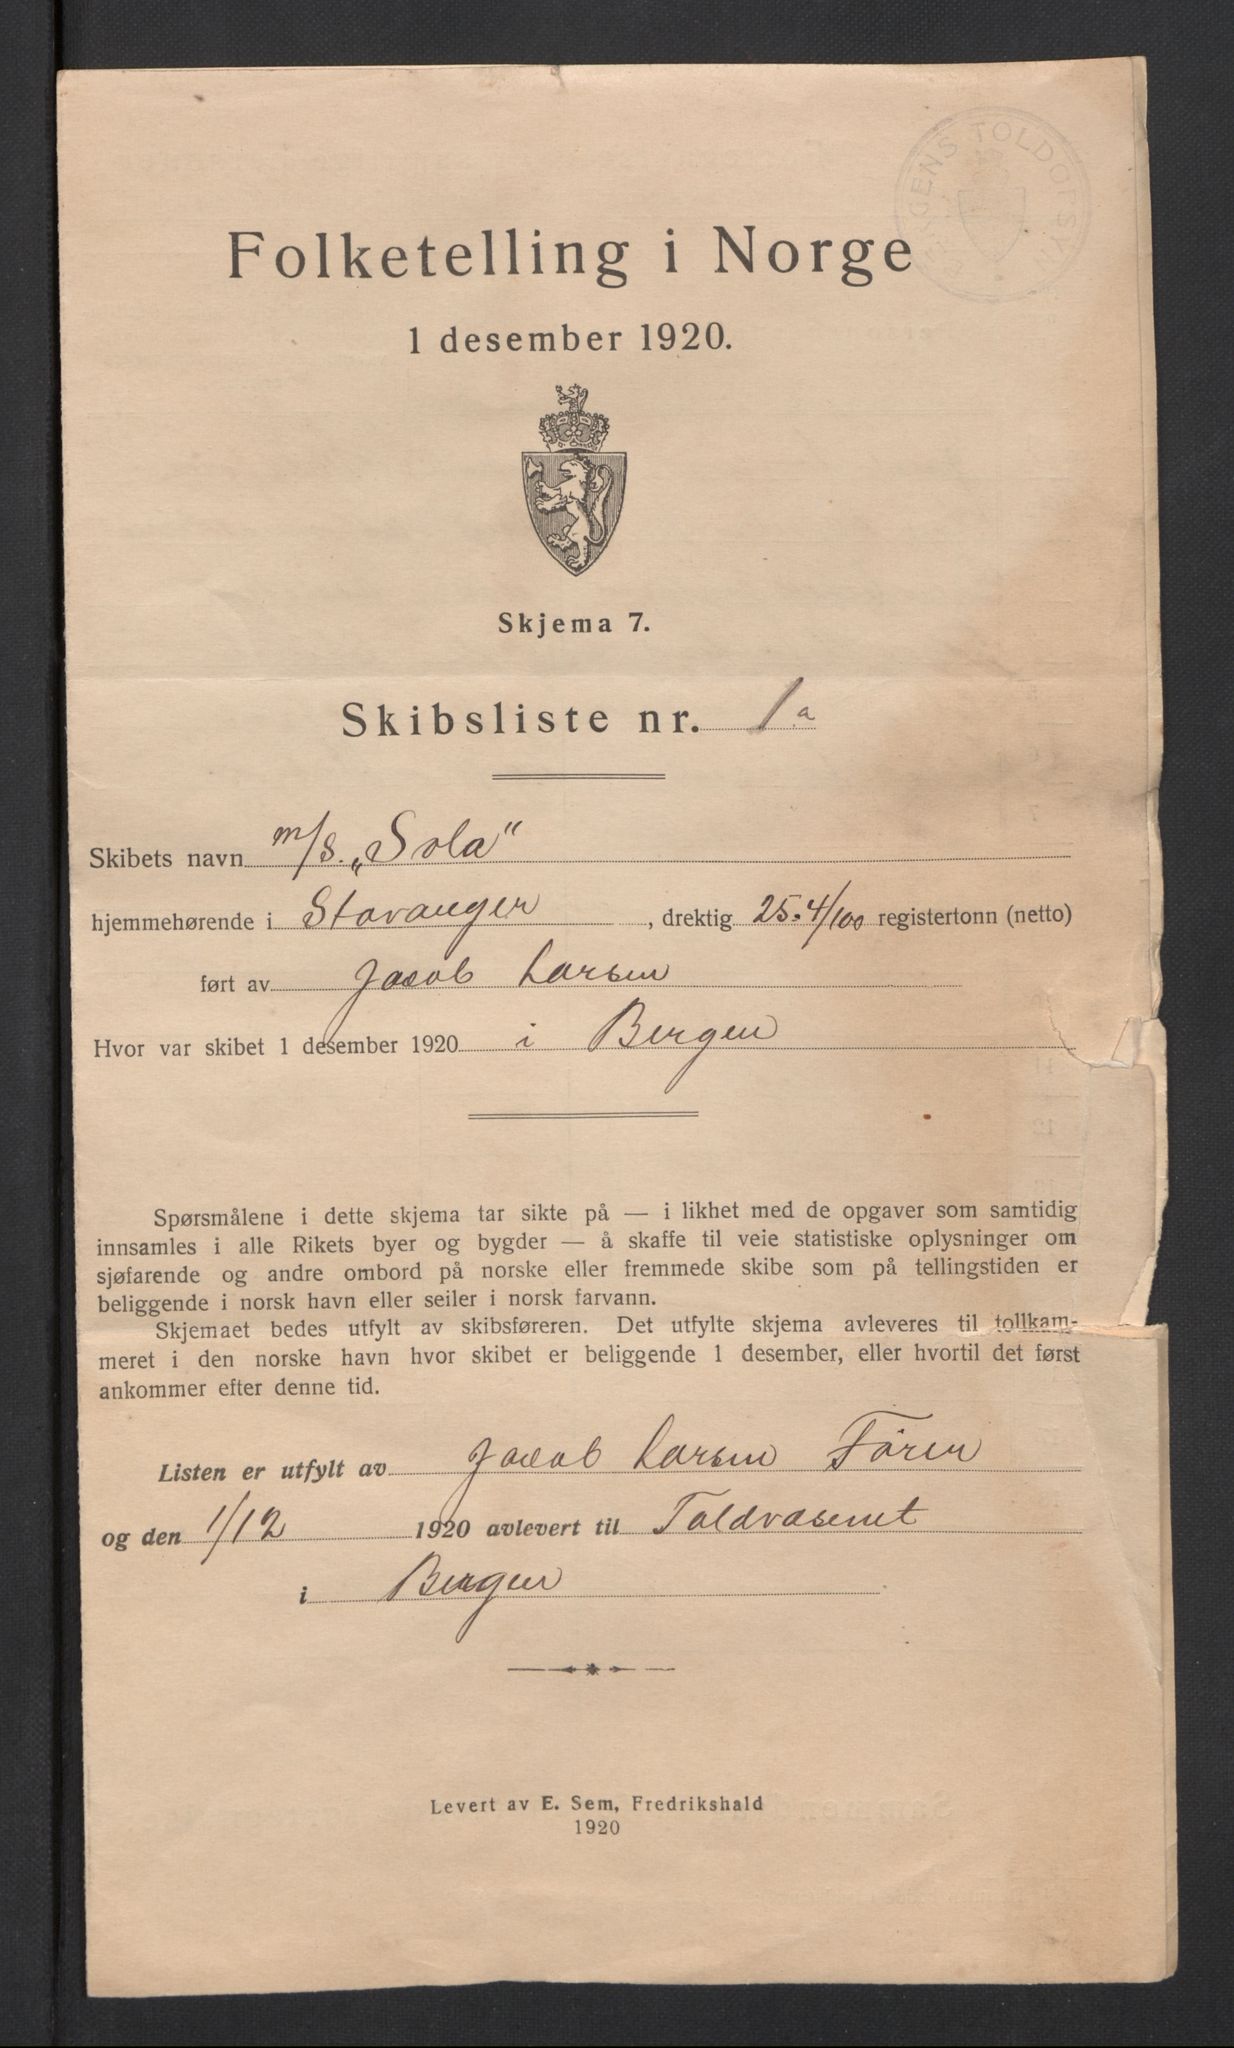 Folketelling i Norge
1 desember 1920.
Skjema 7.
Skibsliste nr. 1a
Skibets navn m/s. „Sola"
hjemmehørende i Stavanger, drektig 25.4/100 registertonn (netto)
ført av Jacob Larsen
Hvor var skibet 1 desember 1920 i Bergen
Spørsmålene i dette skjema tar sikte på — i likhet med de opgaver som samtidig
innsamles i alle Rikets byer og bygder — å skaffe til veie statistiske oplysninger om
sjøfarende og andre ombord på norske eller fremmede skibe som på tellingstiden er
beliggende i norsk havn eller seiler i norsk farvann.
Skjemaet bedes utfylt av skibsføreren. Det utfylte skjema avleveres til tollkam-
meret i den norske havn hvor skibet er beliggende 1 desember, eller hvortil det først
ankommer efter denne tid.
Listen er utfylt av Jacob Larsen Fören
og den 1/12 1920 avlevert til Toldvæsenet
i Bergen
Levert av E. Sem, Fredrikshald
1920